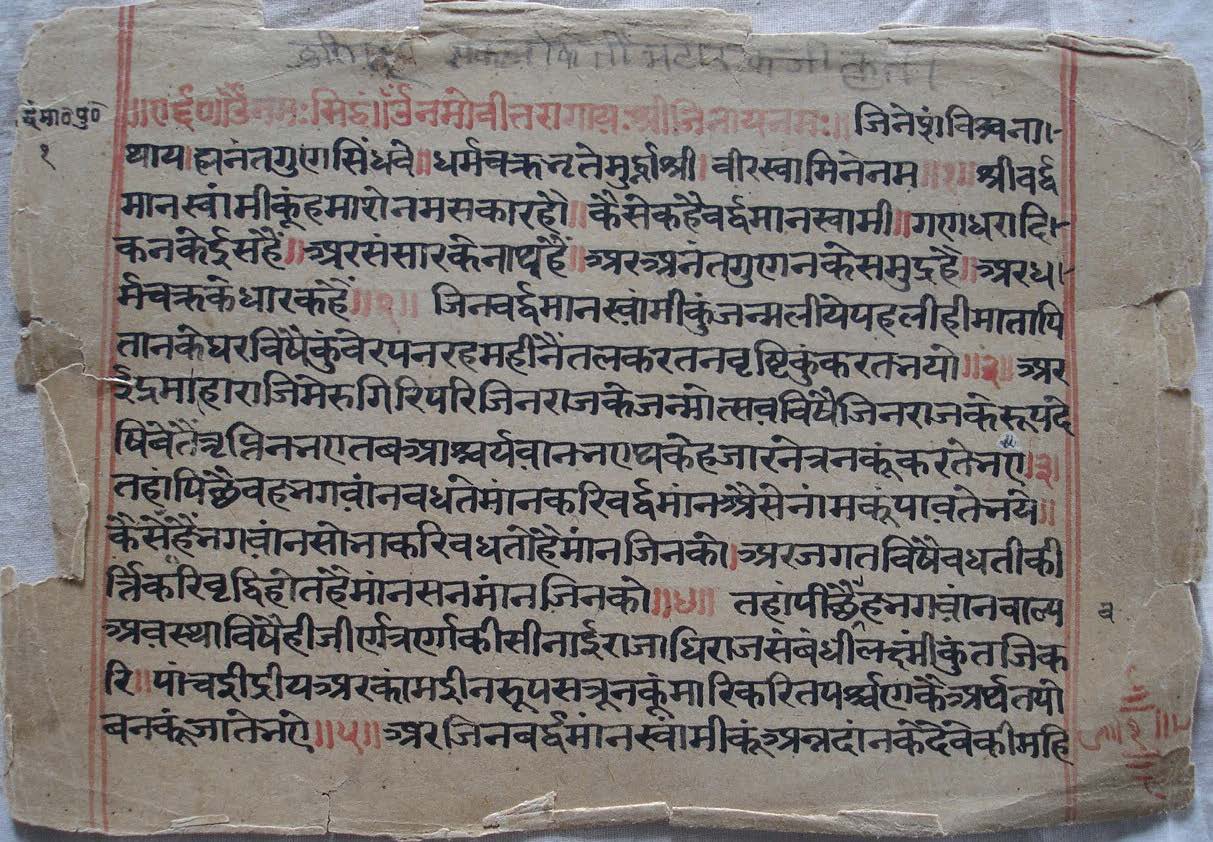 सकलकीर्ति भट्टारक जी कृत।
॥ॐ नमः सिद्धं॥ॐ नमो वीतरागाय॥श्री जिनाय नमः॥ जिनेशं विश्वना-
थाय।ह्यनंतगुणसिंधवे॥धर्मचक्रनृतेमुर्द्धाश्री।वीरस्वामिनेनम॥१॥श्रीवर्द्ध
मानस्वांमीकूंहमारोनमसकारहौ॥कैसेकहैवर्द्धमानस्वामी॥गणधरादि-
कनकेईसहैं॥अरसंसारकेनाथहैं॥अरअनंतगुणनकेसमुद्रहै॥अरध-
र्मचक्रकेधारकहैं॥१॥ जिनवर्द्धमानस्वांमीकुंजन्मलीयेपहलीहीमातापि
तानकेघरविषैंकुंवेरपनरहमहीनैंतलकरतनवृष्टिकुंकरतभयो॥२॥अर
ईंद्रमाहाराजमेरुगिरिपरिजिनराजकेजन्मोत्सवविषैजिनराजकेरूपदे
षिवेतैंतृप्तिनभएतबआश्चर्यवानभएथकेहजारनेत्रनकूंकरतेभए॥३॥
तहांपिछैवहभगवांनवधतेमांनकरिवर्द्धमांनऔसेनांमकूंपावतेभये॥
कैसेंहैंभगवांनसोभाकरिवधतोहैमांनजिनको।अरजगतविषैंवधतीकी
र्त्तिकरिवृद्धिहोतहैमांनसनमांनजिनको॥४॥ तहांपीछैहभगवांनवाल्य
अवस्थाविषैहीजीर्णत्रर्णकीसीनांईराजाधिराजसंबंधीलक्ष्मींकुंतजिक
रि॥पांचइींद्रीयअरकांमइीनरूपसत्रूनकूंमारिकरितपश्चर्णकैअर्थतपो
बनकूंजातेभऐ॥५॥अरजिनवर्द्धमांनस्वांमीकूंअन्नदांनकेदैवेकीमहि